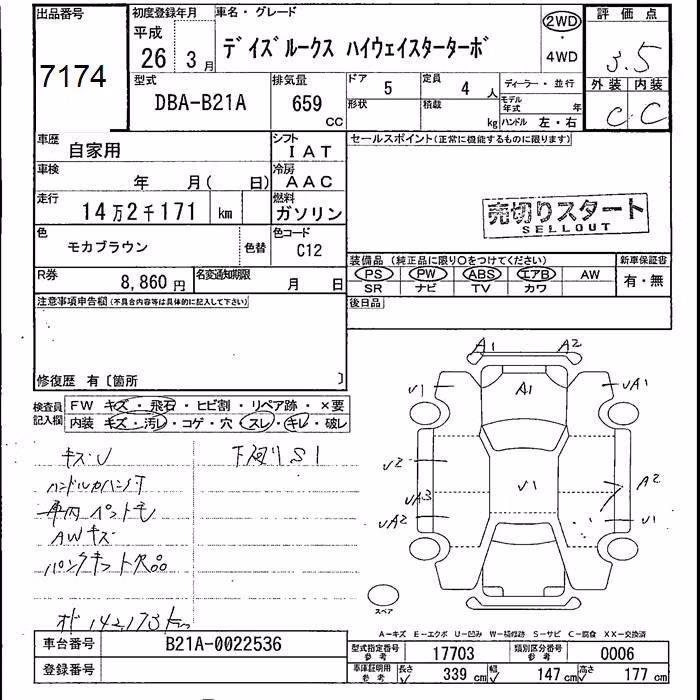 出品番号 初度登録年月 車名・グレード 2WD 評価点
7174 平成 26年 3月 デイズルークス ハイウェイスターターボ ・ 4WD 3.5
型式 排気量 ドア 5 定員 4人 ディーラー・並行 外装 内装
DBA-B21A 659 CC 形状 積載 kg モデル年式 年 ハンドル 左・右 C C
車歴 自家用 シフト IAT セールスポイント(正常に機能するものに限ります)
車検 年 月( 日) 冷房 AAC
走行 14万2千171 km 燃料 ガソリン 売切りスタート
SELLOUT
色 モカブラウン 色替 色コード C12
装備品 (純正品に限り○をつけてください) 新車保証書
R券 8,860円 名変通知期限 月 日 PS PW ABS エアB AW 有・無
SR ナビ TV カワ
注意事項申告欄(不具合内容等は具体的に記入して下さい) 後日品
修復歴 有〔箇所 〕
検査員記入欄 FW キズ・飛石・ヒビ割・リペア跡・×要
内装 キズ・汚レ・コゲ・穴・スレ・キレ・破レ
キズ・U 下廻りS1
車内ペットモ
AWキズ
パンクキット欠品
オド 142,173km
A1 A2
U1 A1 UA1
U2 U1 A2
UA3
UA2 U1
スペア
A-キズ E-エクボ U-凹み W-補修跡 S-サビ C-腐食 XX-交換済
車台番号 B21A-0022536 型式指定番号 参考 17703 類別区分番号 参考 0006
登録番号 車庫証明用 参考 長さ 339 cm 幅 147 cm 高さ 177 cm